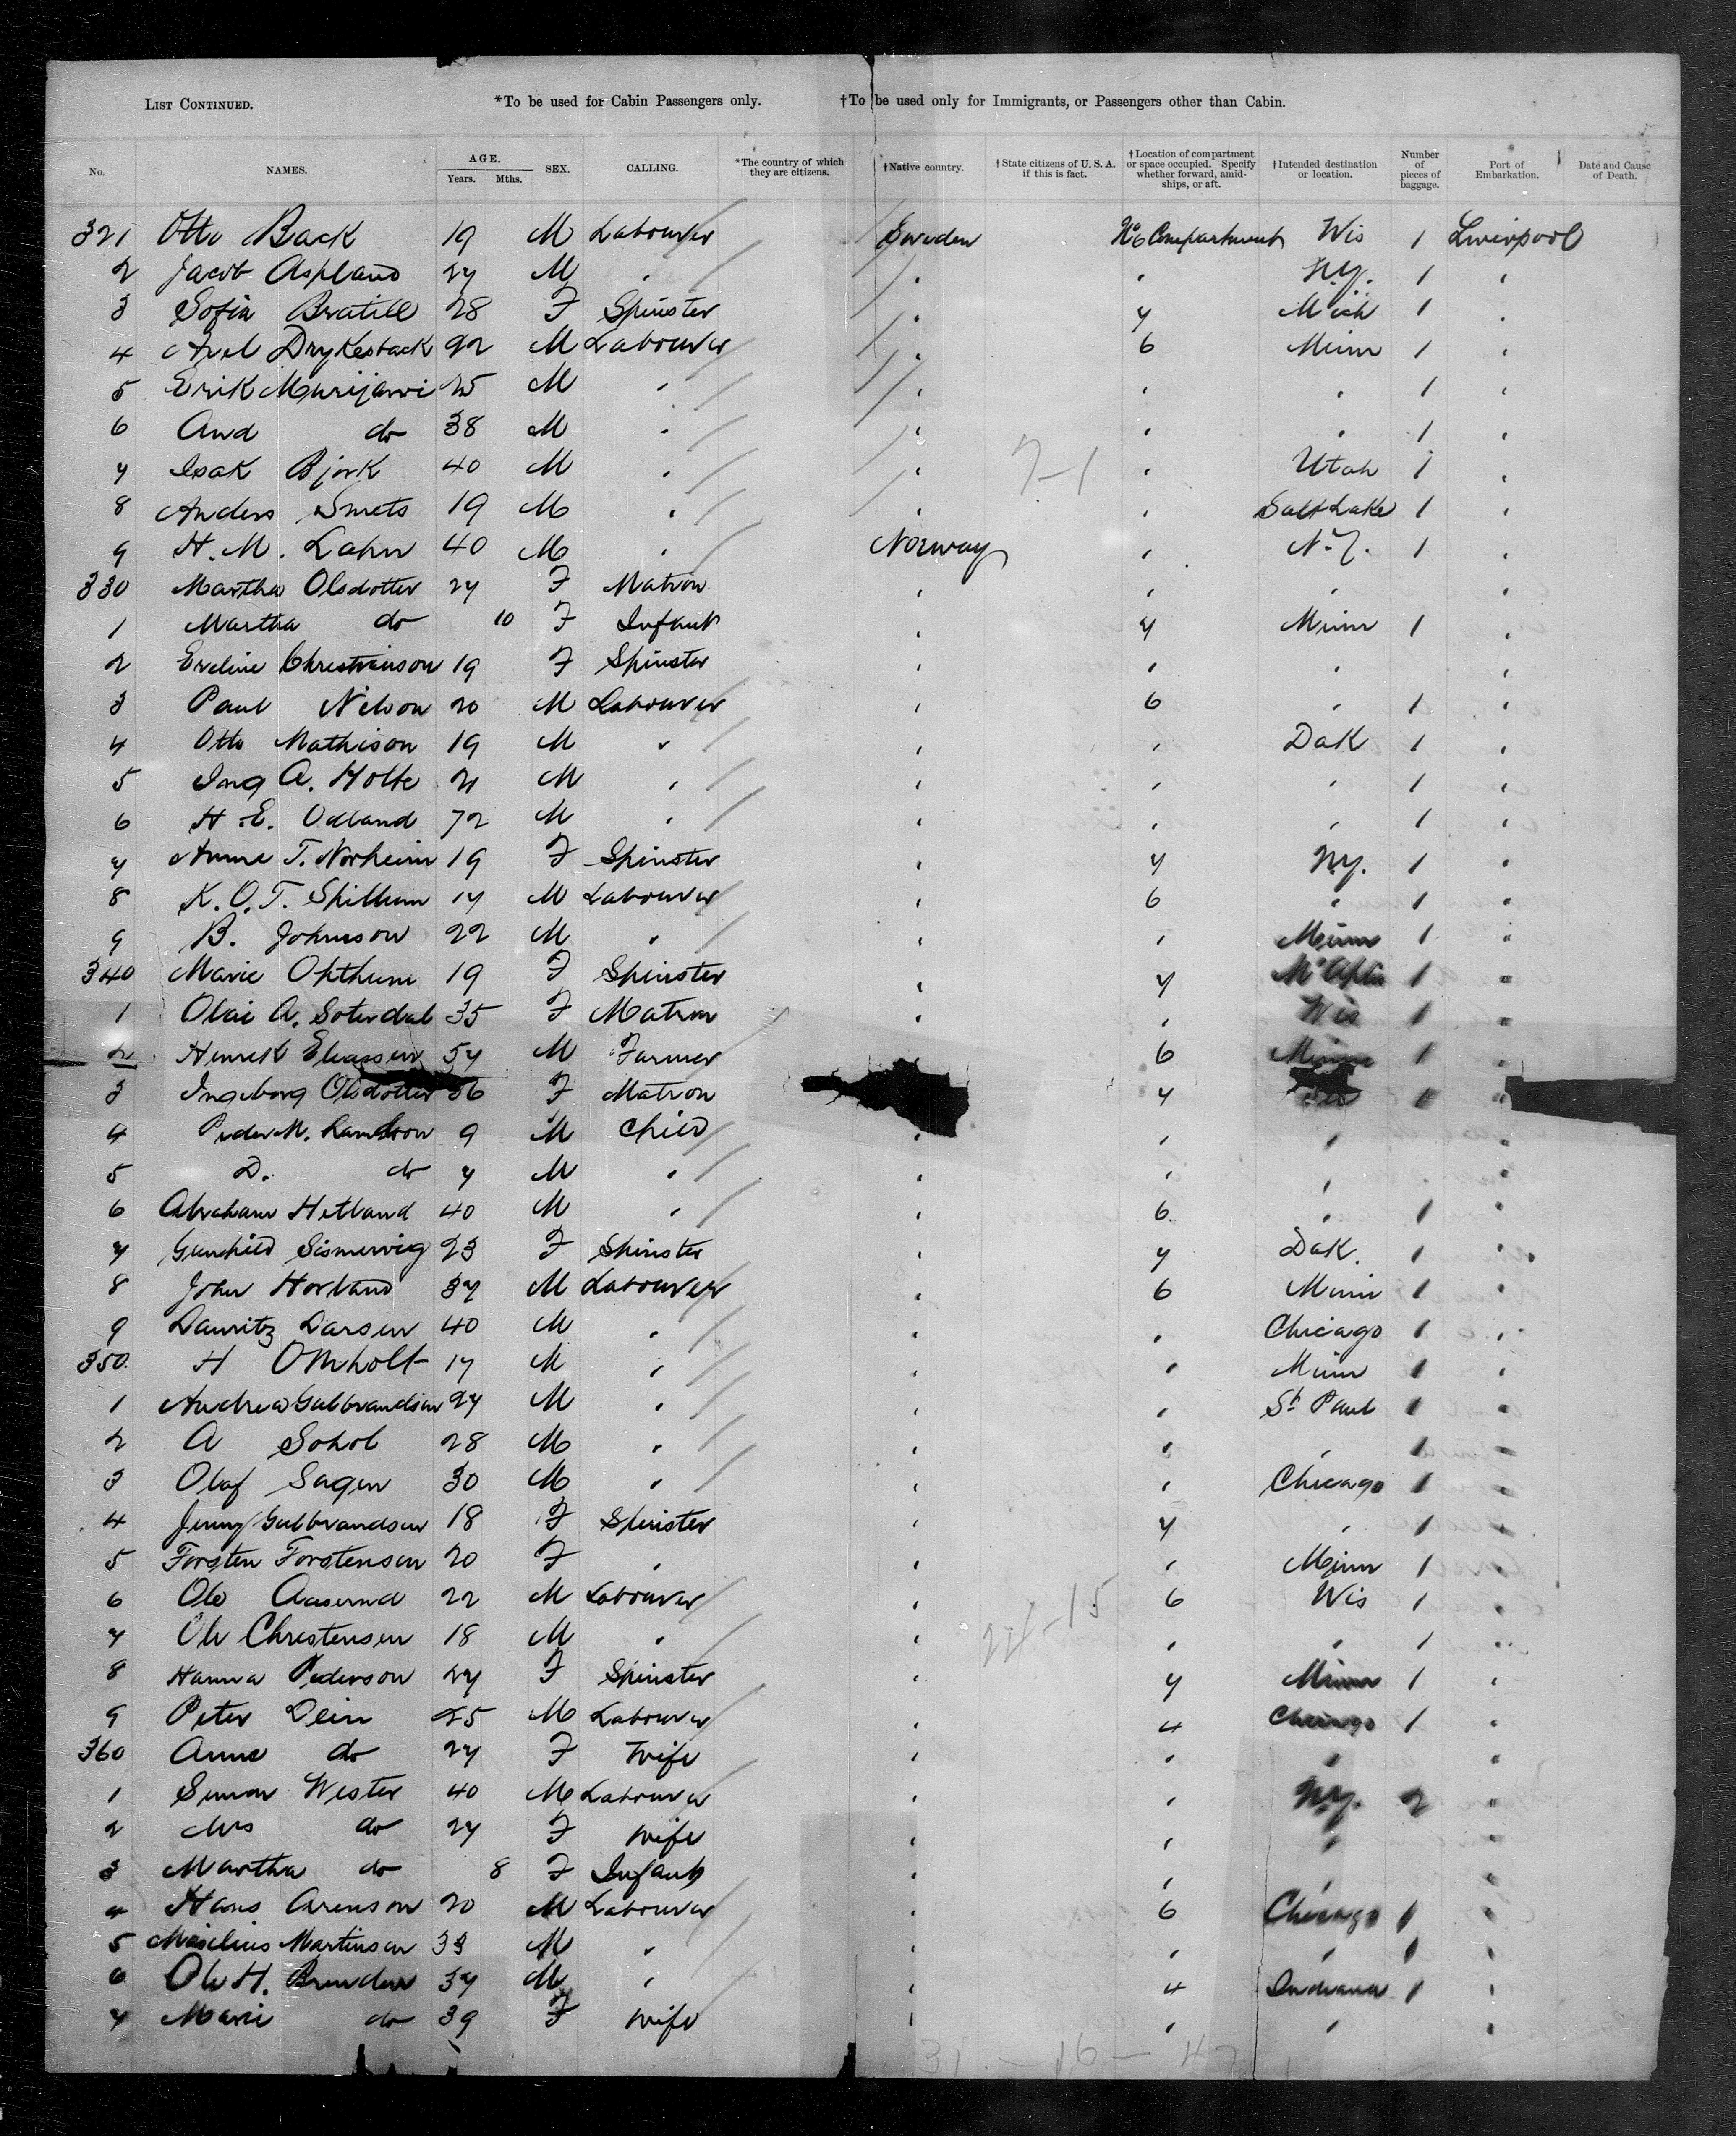 LIST CONTINUED. *To be used for Cabin Passengers only. †To be used only for Immigrants, or Passengers other than Cabin.
No. NAMES. AGE. Years. Mths. SEX. CALLING. *The country of which they are citizens. †Native country. †State citizens of U. S. A. if this is fact. †Location of compartment or space occupied. Specify whether forward, amidships, or aft. †Intended destination or location. Number of pieces of baggage. Port of Embarkation. Date and Cause of Death.
321 Otto Back 19 M Labourer Sweden No 6 Compartment Wis 1 Liverpool
2 Jacob Aspland 27 M " " " N.Y. 1 "
3 Sofia Bratill 28 F Spinster " 7 Mich 1 "
4 Axel Drykesback 22 M Labourer " 6 Minn 1 "
5 Erik Murijarvi 25 M " " " " 1 "
6 And do 38 M " " " " 1 "
7 Isak Bjork 40 M " " " Utah 1 "
8 Anders Smets 19 M " " " Salt Lake 1 "
9 H. M. Lahn 40 M " Norway " N.Y. 1 "
330 Martha Olsdotter 27 F Matron " " " "
1 Martha do 10 F Infant " 7 Minn 1 "
2 Eveline Christianson 19 F Spinster " " " "
3 Paul Nilson 20 M Labourer " 6 " 1 "
4 Otto Mathison 19 M " " " Dak 1 "
5 Ing A. Holte 21 M " " " " 1 "
6 H. E. Odland 72 M " " " " 1 "
7 Anna T. Norheim 19 F Spinster " 7 N.Y. 1 "
8 K. O. T. Spillum 17 M Labourer " 6 " 1 "
9 B. Johnson 22 M " " " Minn 1 "
340 Marie Ophthum 19 F Spinster " 7 1 "
1 Olai A. Soterdal 35 F Matron " " Wis 1 "
2 Henrik Eliassen 57 M Farmer 6 Minn 1 "
3 Ingeborg Olsdotter 36 F Matron 7 1 "
4 Peder M. 9 M Child " " " "
5 D. do 7 M " " " " "
6 Abraham Hetland 40 M " " 6 " 1 "
7 Gunhild Sismervig 23 F Spinster " 7 Dak. 1 "
8 John Horland 37 M Labourer " 6 Minn 1 "
9 Lauritz Larsen 40 M " " " Chicago 1 "
350 H Omholt 17 M " " " Minn 1 "
1 Andrew Gulbrandsen 27 M " " " St Paul 1 "
2 A Sohol 28 M " " " " 1 "
3 Olaf Sagen 30 M " " " Chicago 1 "
4 Jenny Gulbrandsen 18 F Spinster " 7 " 1 "
5 Torsten Torstenson 20 F " " " Minn 1 "
6 Ole Aaserud 22 M Labourer " 6 Wis 1 "
7 Ole Christensen 18 M " " " " 1 "
8 Hanna Pederson 27 F Spinster " 7 Minn 1 "
9 Peter Lein 25 M Labourer " 4 Chicago 1 "
360 Anna do 27 F Wife " " " "
1 Simon Wester 40 M Labourer " " N.Y. 2 "
2 Mrs do 27 F Wife " " " "
3 Martha do 8 F Infant " " " "
4 Hans Arenson 20 M Labourer " 6 Chicago 1 "
5 Martinson 33 M " " " " 1 "
6 Ole H. Brenden 37 M " " 4 Indiana 1 "
7 Marie do 39 F Wife " " " "
31 - 16 - 47